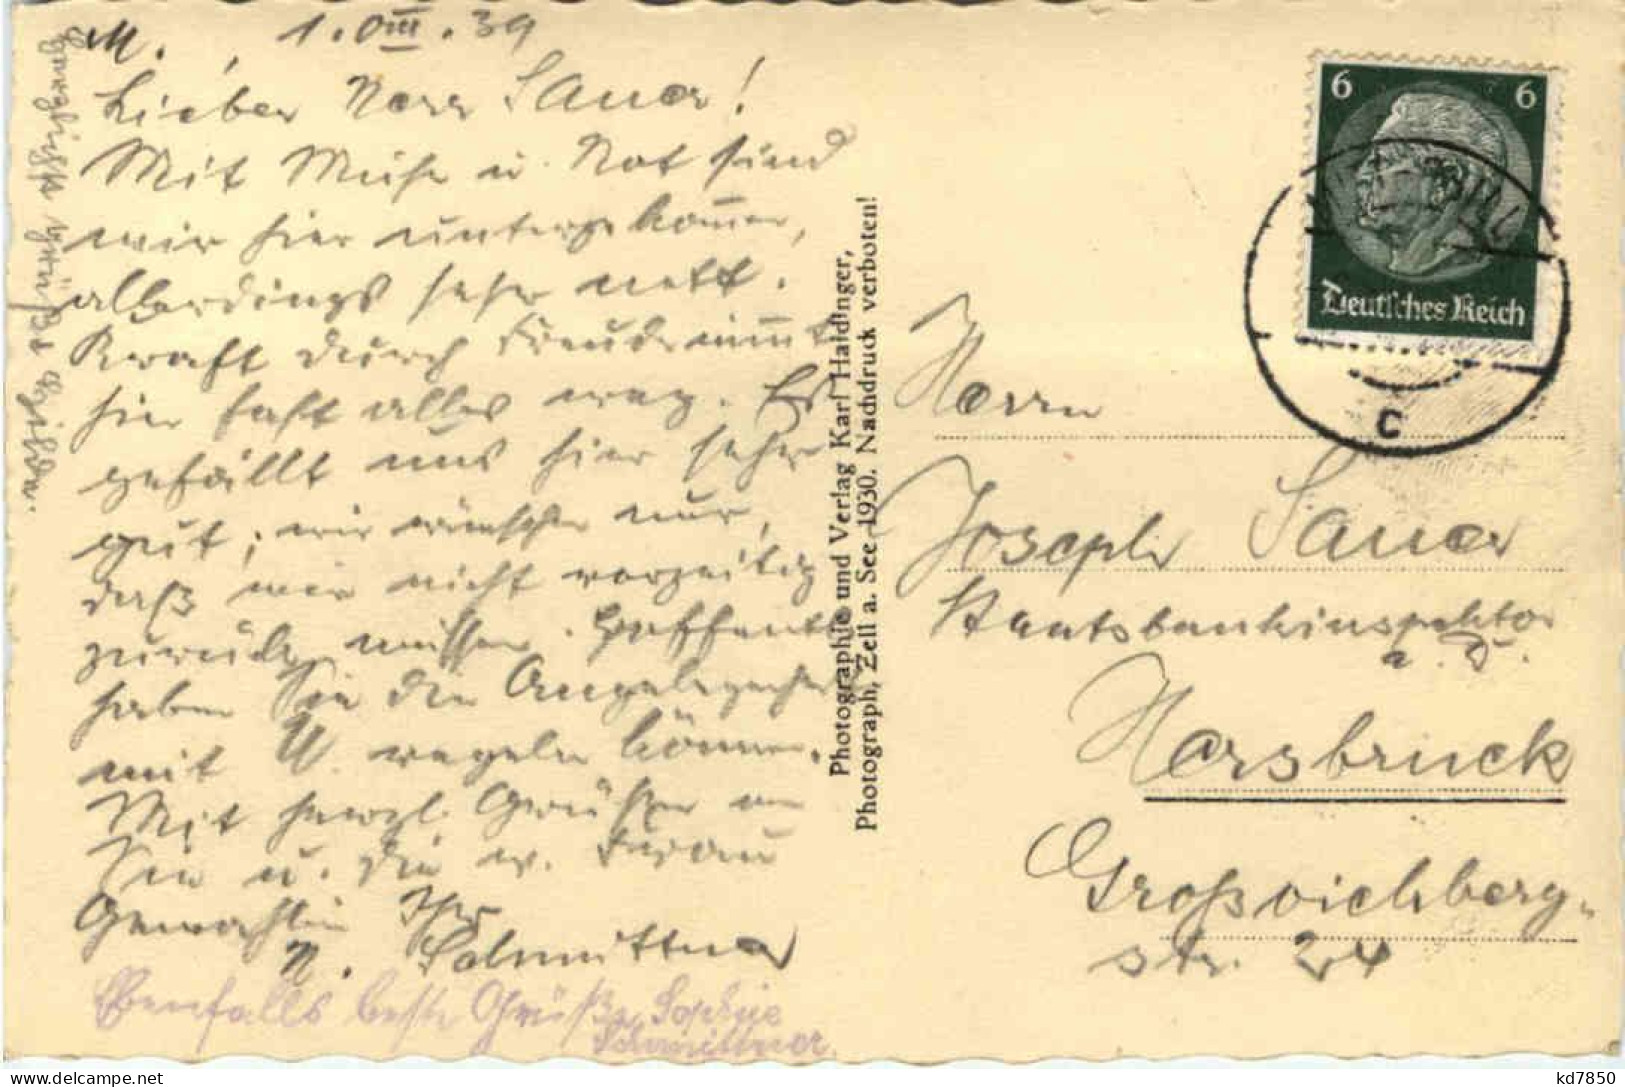 M., 1.VIII.39
Lieber Herr Sauer!
Mit Mühe u. Not sind
wir hier untergekommen,
allerdings sehr nett.
Kraft durch Freude nimmt
hier fast alles weg. Es
gefällt uns hier sehr
gut; wir wünschen nur,
daß wir nicht vorzeitig
zurück müssen. Hoffentl.
haben Sie die Angelegenheit
mit U. regeln können.
Mit herzl. Grüßen an
Sie u. die w. Frau
Gemahlin Ihr
H. Schmittner
Ebenfalls beste Grüße, Sophie
Schmittner
Herzlichst grüßt
Photographie und Verlag Karl Haidinger,
Photograph, Zell a. See 1930. Nachdruck verboten!
6 6
Deutsches Reich
c
Herrn
Joseph Sauer
Staatsbankinspektor
a. D.
Hersbruck
Großviehberg-
str. 24
kd7850